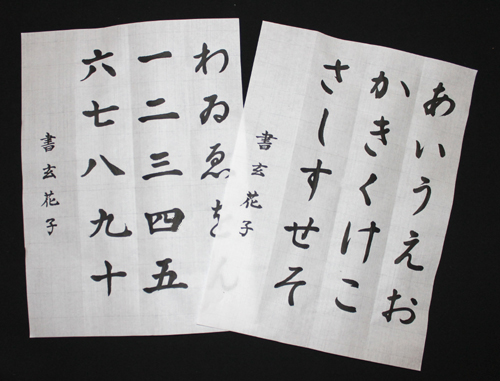 あいうえお
かきくけこ
さしすせそ
書玄花子
わゐゑをん
一二三四五
六七八九十
書玄花子